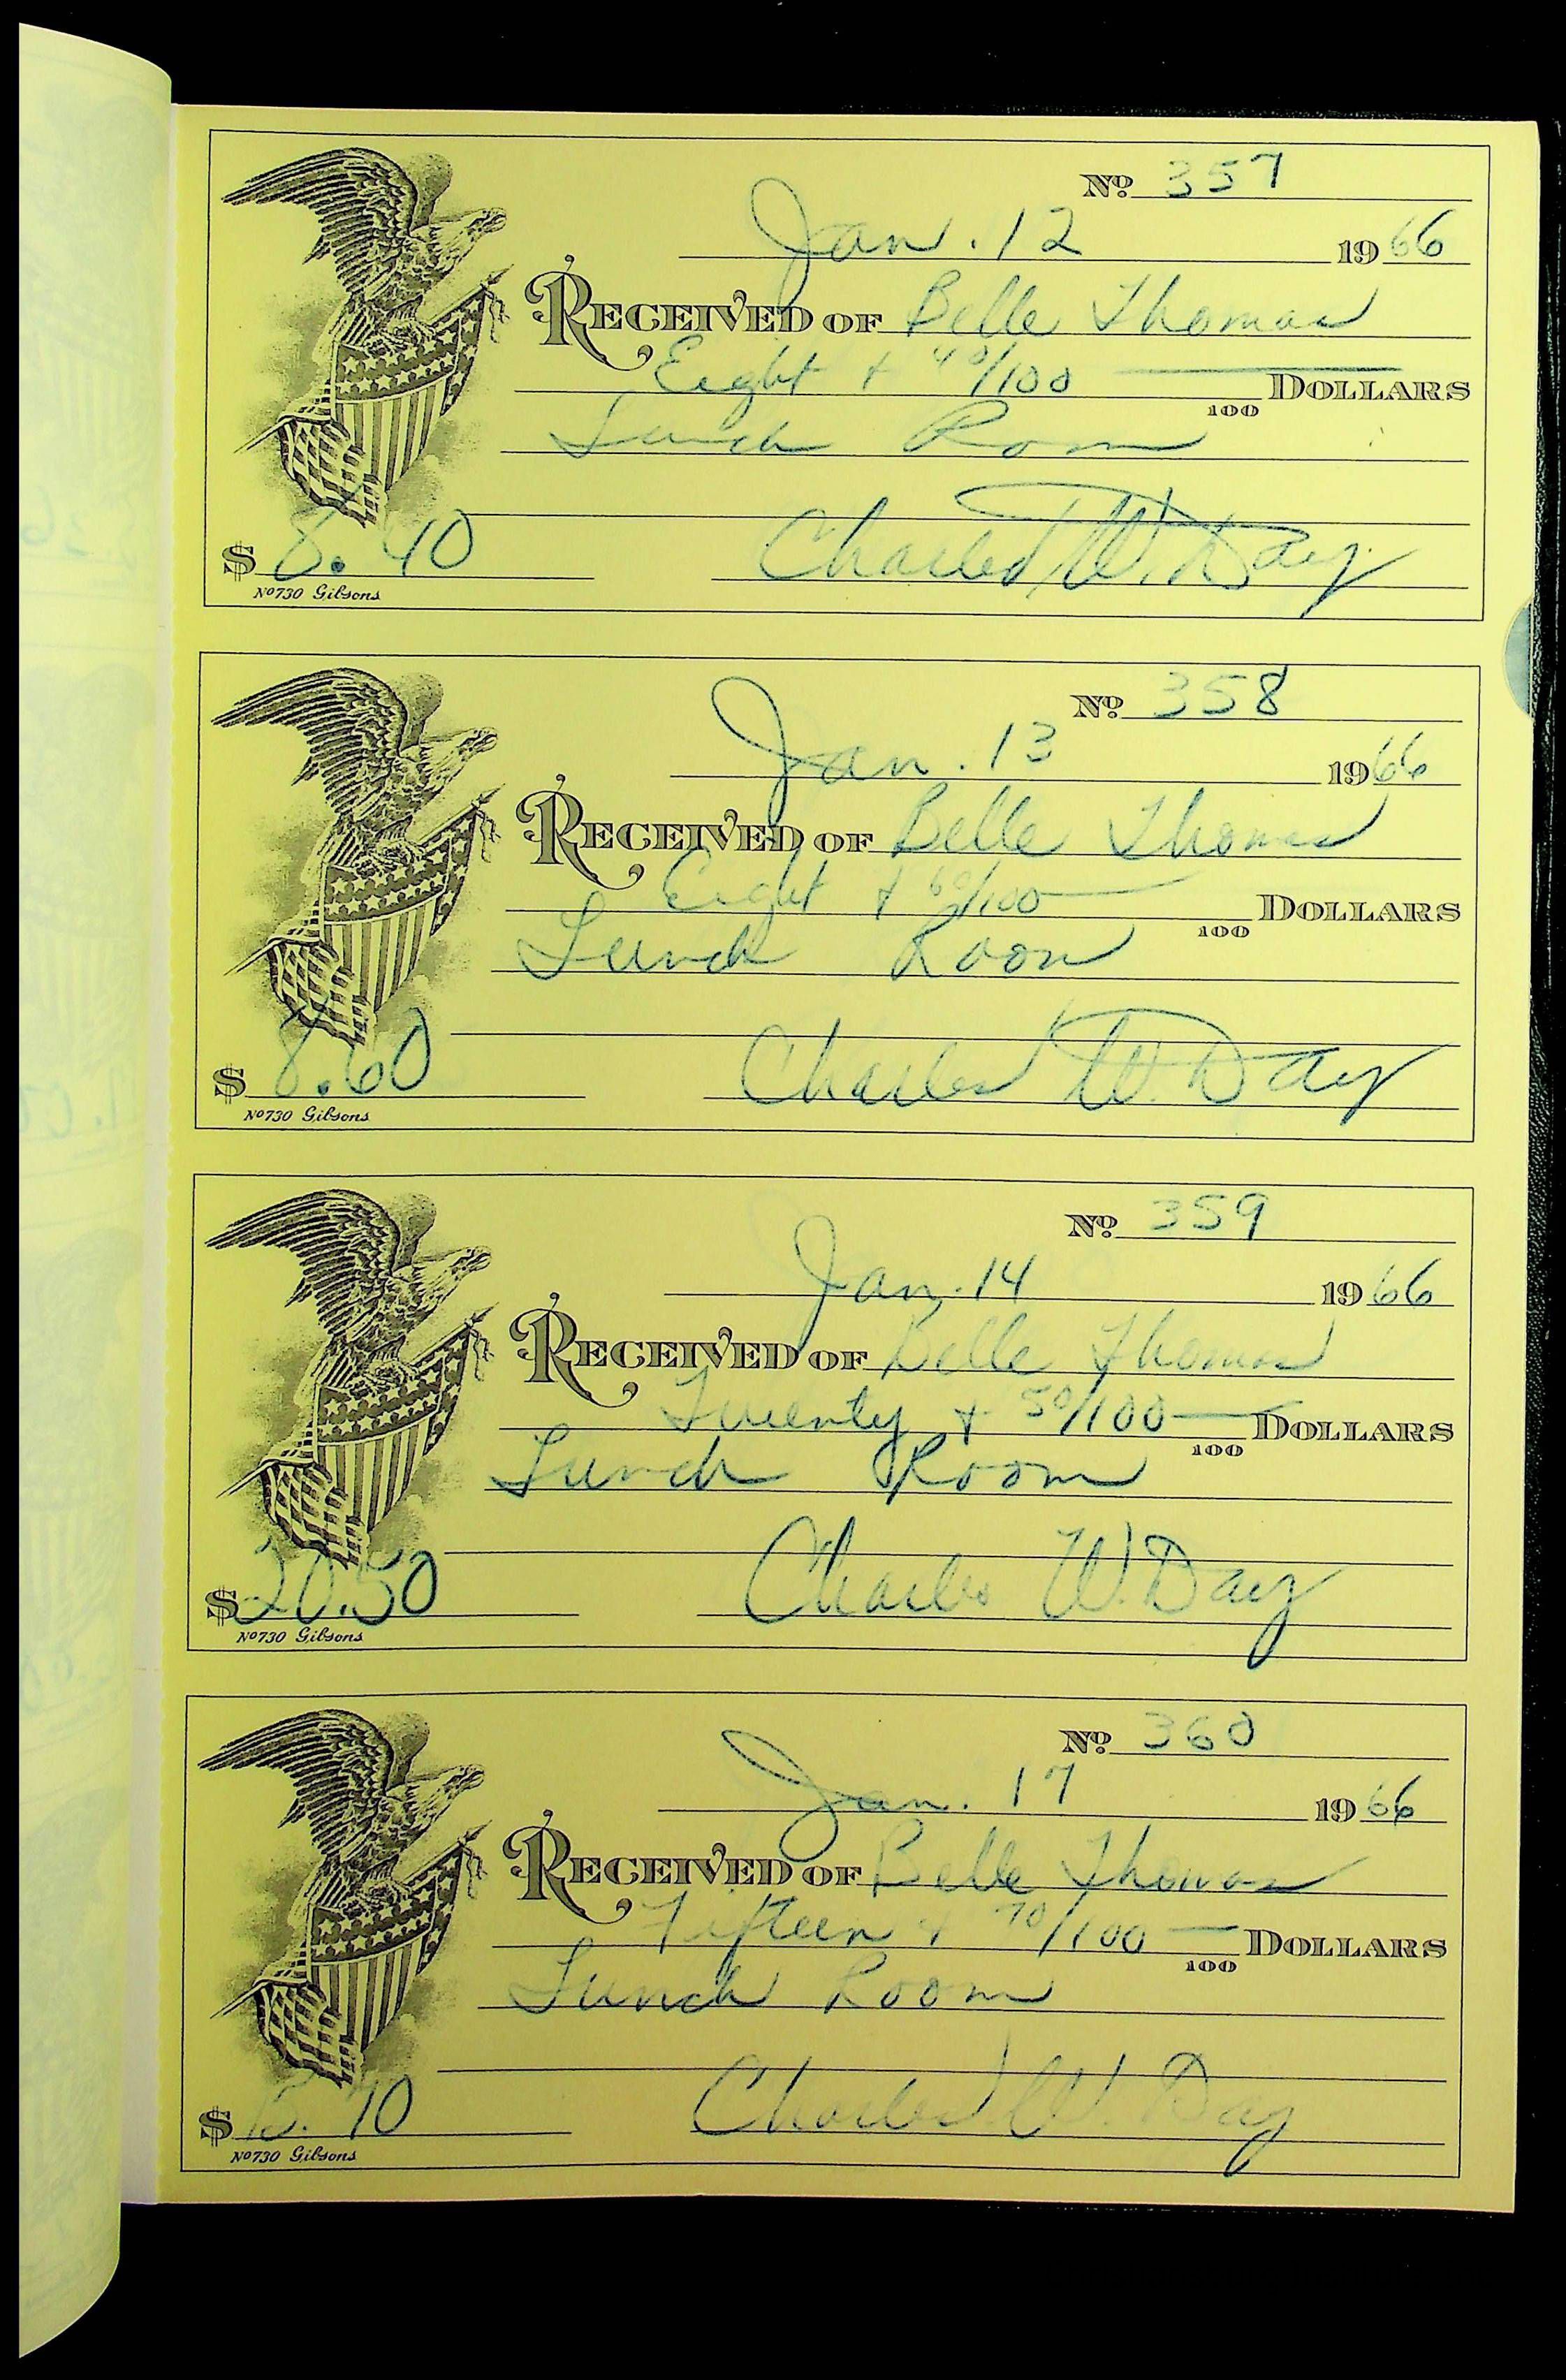 No. 357
Jan. 12 1966
RECEIVED OF Belle Thomas
Eight + 40/100 DOLLARS
100
Lunch Room
$ 8.40 Charles W. Day
No 730 Gibsons
No. 358
Jan. 13 1966
RECEIVED OF Belle Thomas
Eight + 60/100 DOLLARS
100
Lunch Room
$ 8.60 Charles W. Day
No 730 Gibsons
No. 359
Jan. 14 1966
RECEIVED OF Belle Thomas
Twenty + 50/100 DOLLARS
100
Lunch Room
$ 20.50 Charles W. Day
No 730 Gibsons
No. 360
Jan. 17 1966
RECEIVED OF Belle Thomas
Fifteen + 70/100 DOLLARS
100
Lunch Room
$ 15.70 Charles W. Day
No 730 Gibsons